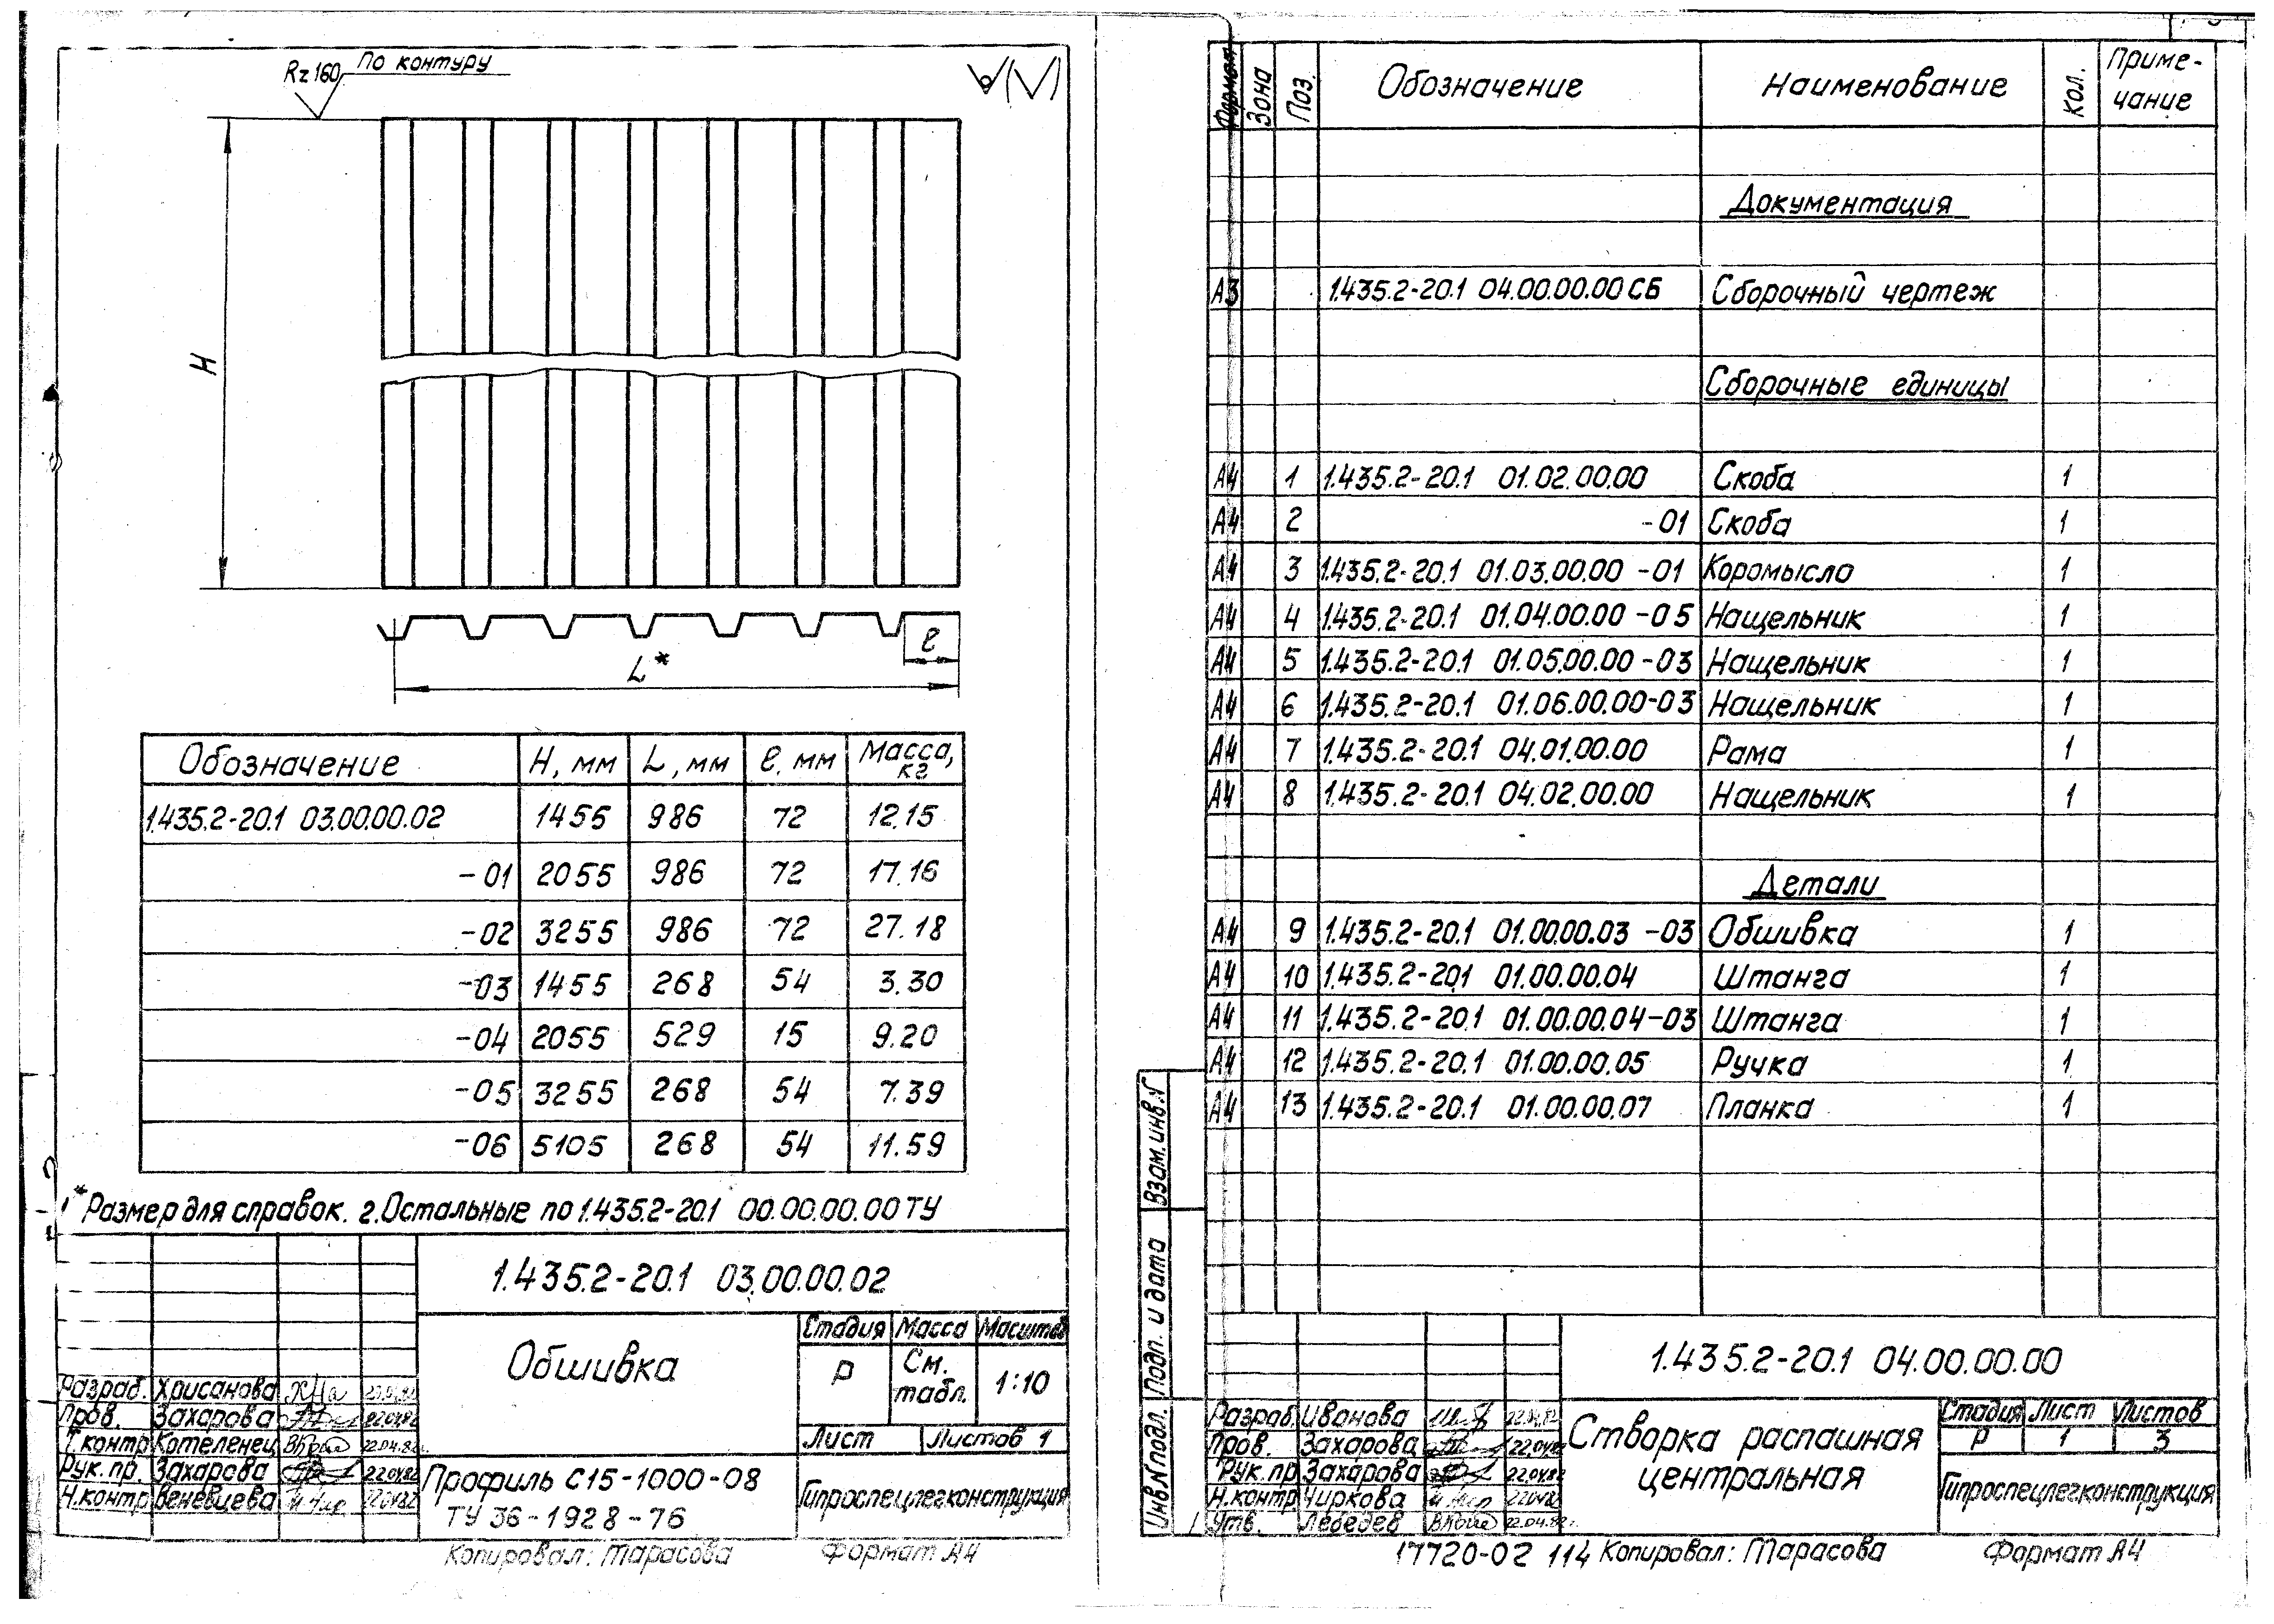 Rz160 по контуру
H
L*
ℓ
Обозначение H, мм L, мм ℓ, мм Масса, кг
1.435.2-20.1 03.00.00.02 1455 986 72 12.15
-01 2055 986 72 17.16
-02 3255 986 72 27.18
-03 1455 268 54 3.30
-04 2055 529 15 9.20
-05 3255 268 54 7.39
-06 5105 268 54 11.59
1* Размер для справок. 2. Остальные по 1.435.2-20.1 00.00.00.00 ТУ
1.435.2-20.1 03.00.00.02
Обшивка
Стадия Масса Масштаб
Р См. табл. 1:10
Лист Листов 1
Разраб. Хрисанова
Пров. Захарова 22.04.82
Т.контр Котеленец 22.04.82г.
Рук. пр. Захарова 22.04.82
Н.контр Веневцева 22.04.82
Профиль С15-1000-08
ТУ 36-1928-76
Гипроспецлегконструкция
Копировал: Тарасова Формат А4
Формат Зона Поз. Обозначение Наименование Кол. Приме-
чание
Документация
А3 1.435.2-20.1 04.00.00.00 СБ Сборочный чертеж
Сборочные единицы
А4 1 1.435.2-20.1 01.02.00.00 Скоба 1
А4 2 -01 Скоба 1
А4 3 1.435.2-20.1 01.03.00.00 -01 Коромысло 1
А4 4 1.435.2-20.1 01.04.00.00 -05 Нащельник 1
А4 5 1.435.2-20.1 01.05.00.00 -03 Нащельник 1
А4 6 1.435.2-20.1 01.06.00.00-03 Нащельник 1
А4 7 1.435.2-20.1 04.01.00.00 Рама 1
А4 8 1.435.2-20.1 04.02.00.00 Нащельник 1
Детали
А4 9 1.435.2-20.1 01.00.00.03 -03 Обшивка 1
А4 10 1.435.2-20.1 01.00.00.04 Штанга 1
А4 11 1.435.2-20.1 01.00.00.04-03 Штанга 1
А4 12 1.435.2-20.1 01.00.00.05 Ручка 1
А4 13 1.435.2-20.1 01.00.00.07 Планка 1
Взам. инв. №
Подп. и дата
Инв. № подл.
1.435.2-20.1 04.00.00.00
Створка распашная
центральная
Стадия Лист Листов
Р 1 3
Разраб. Иванова 22.04.82
Пров. Захарова 22.04.82
Рук. пр Захарова 22.04.82
Н.контр Чиркова 22.04.82
Утв. Лебедев 22.04.82г.
Гипроспецлегконструкция
17720-02 114 Копировал: Тарасова Формат А4